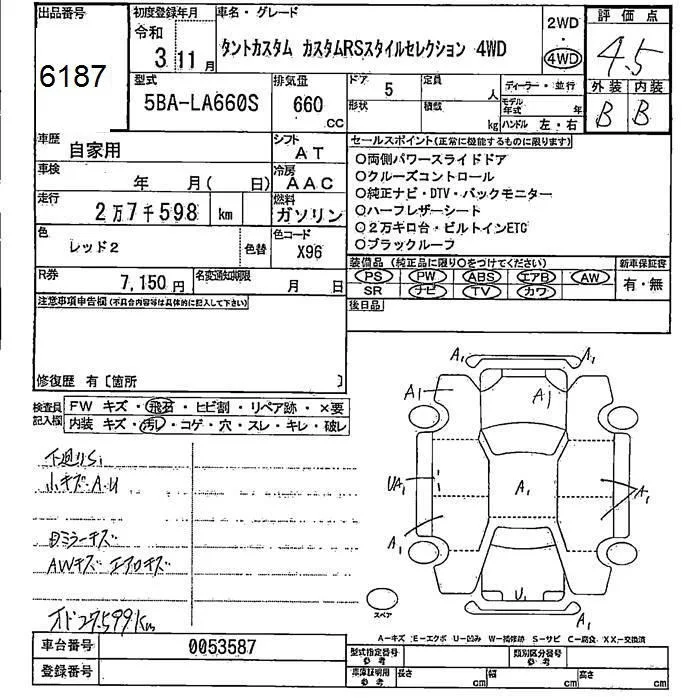 出品番号
6187
初度登録年月
令和
3年11月
車名・グレード
タントカスタム カスタムRSスタイルセレクション 4WD
2WD
・
4WD
評価点
4.5
外装 内装
B B
型式
5BA-LA660S
排気量
660
.CC
ドア 5
定員 人
形状
積載 kg
ディーラー・並行
モデル年式 年
ハンドル 左・右
車歴
自家用
シフト
AT
車検
年 月( 日)
冷房
AAC
走行
2万7千598 km
燃料
ガソリン
色
レッド2
色替
色コード
X96
R券
7,150円
名変通知期限
月 日
セールスポイント(正常に機能するものに限ります)
○両側パワースライドドア
○クルーズコントロール
○純正ナビ・DTV・バックモニター
○ハーフレザーシート
○2万キロ台・ビルトインETC
○ブラックルーフ
装備品(純正品に限り○をつけてください)
PS PW ABS エアB AW
SR ナビ TV カワ
新車保証書
有・無
後日品
注意事項申告欄(不具合内容等は具体的に記入して下さい)
修復歴 有〔箇所 〕
検査員
記入欄
FW キズ・飛石・ヒビ割・リペア跡・×要
内装 キズ・汚レ・コゲ・穴・スレ・キレ・破レ
下廻りS1
小キズ.A.U
ミラーキズ
AWキズ エアロキズ
オド27.599km
A1 A1
A1 A1
UA1 A1 A1
A1
U1
A1
スペア
A-キズ E-エクボ U-凹み W-補修跡 S-サビ C-腐食 X,XX-交換済
車台番号
0053587
登録番号
型式指定番号
参考
類別区分番号
参考
車庫証明用
参考
長さ cm
幅 cm
高さ cm